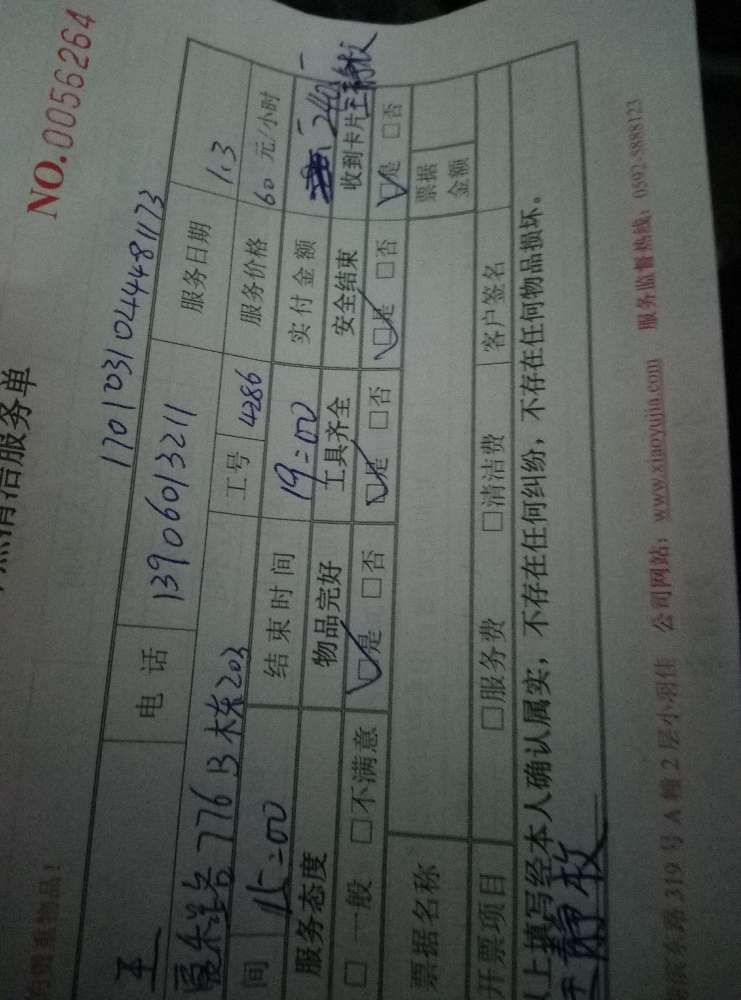 清洁服务单
NO.0056264
贵重物品!
17010310444481173
王 电话 13906013211 服务日期 1.3
路776B栋203 工号 4286 服务价格 60元/小时
间 15:00 结束时间 19:00 实付金额 240
服务态度 物品完好 工具齐全 安全结束 收到卡片
□一般 □不满意 □是 □否 □是 □否 □是 □否 □是 □否
票据名称 票据金额
开票项目 □服务费 □清洁费 客户签名
以上填写经本人确认属实,不存在任何纠纷,不存在任何物品损坏。
路319号A幢2层小羽佳 公司网站:www.xiaoyujia.com 服务监督热线:0592-5888123